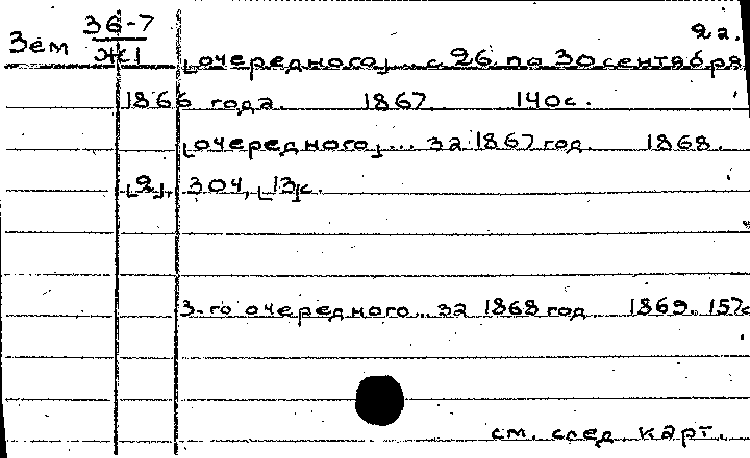 36-7 2 г.
Зем Ж1 [очередного] ... с 26 по 30 сентября
1866 года. 1867 140с.
[очередного] ... за 1867 год. 1868.
[2], 304, [13]с.
3-го очередного... за 1868 год 1869. 157с
см. след. карт.